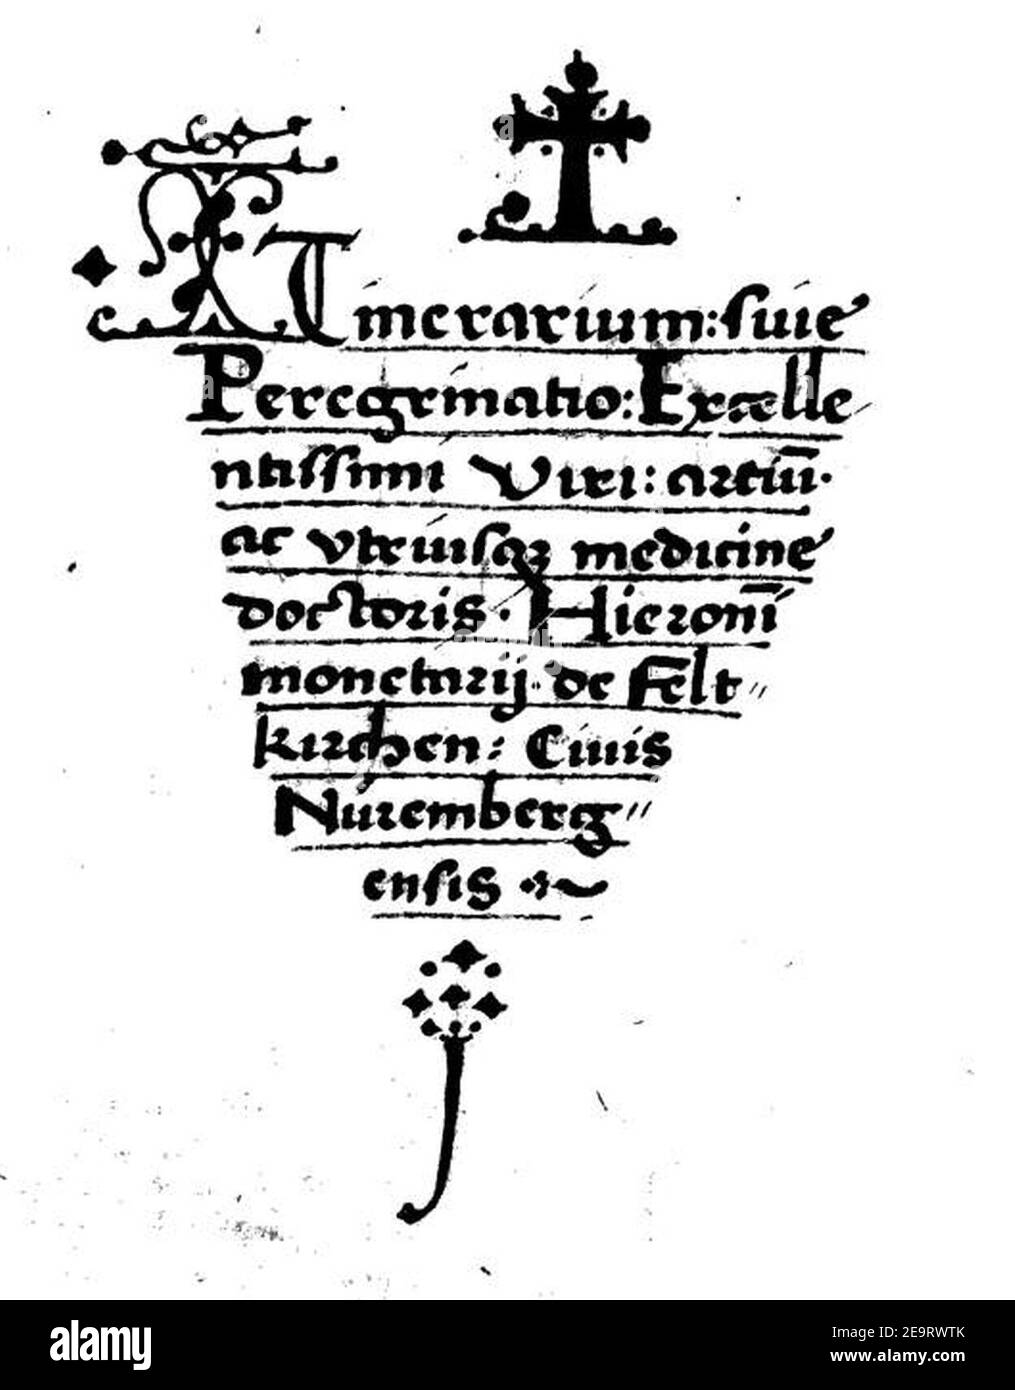 ITinerarium: suie
Peregrinatio: Excelle
ntissimi Viri: artiū.
ac vtriusqꝫ medicine
doctoris. Hieronīi
monetarij. de Felt〃
kirchen: Ciuis
Nüremberg〃
ensis
alamy
Image ID: 2E9RWTK
www.alamy.com